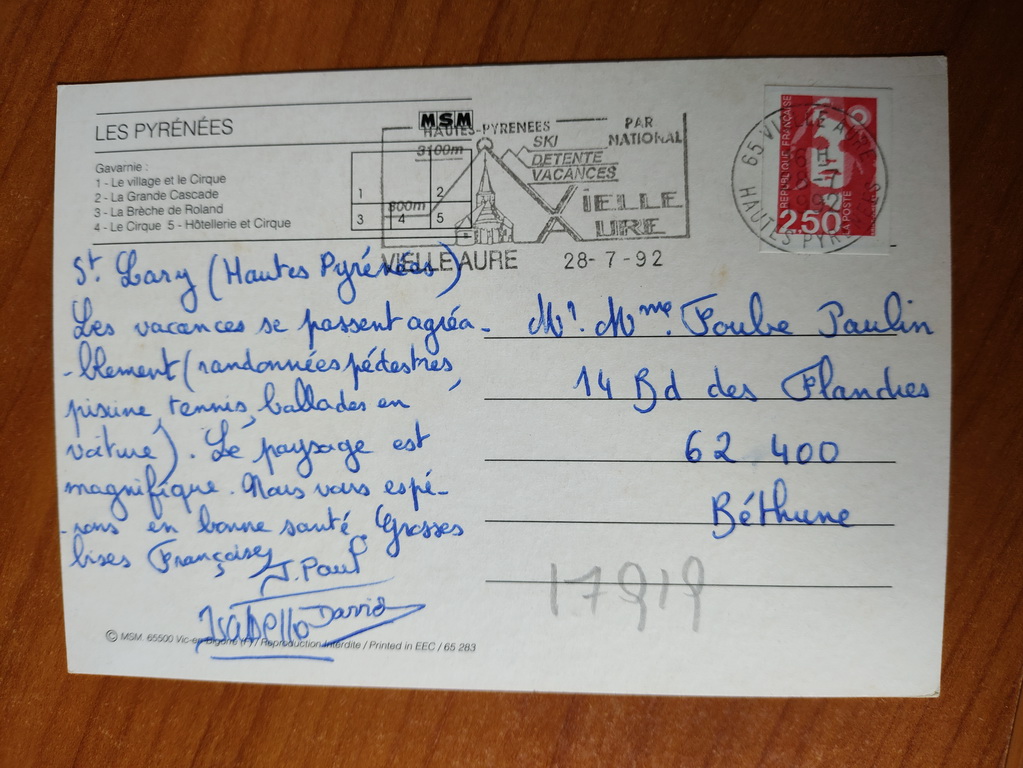 LES PYRÉNÉES
MSM
Gavarnie :
1 - Le village et le Cirque
2 - La Grande Cascade
3 - La Brèche de Roland
4 - Le Cirque 5 - Hôtellerie et Cirque
1
2
3
4
5
HAUTES-PYRENEES
PAR
NATIONAL
3100m
800m
SKI
DETENTE
VACANCES
VIELLE
AURE
VIELLE AURE 28-7-92
65 VIELLE AURE
HAUTES PYR
REPUBLIQUE FRANÇAISE
2.50
LA POSTE
St Lary (Hautes Pyrénées)
Les vacances se passent agréa-
-blement (randonnées pédestres,
piscine, tennis, ballades en
voiture). Le paysage est
magnifique. Nous vous espé-
-rons en bonne santé. Grosses
bises Françoise,
J. Paul
Isabelle David
Mr. Mme. Foube Paulin
14 Bd des Flandres
62 400
Béthune
17919
© MSM 65500 Vic-en-Bigorre (F) / Reproduction interdite / Printed in EEC / 65 283